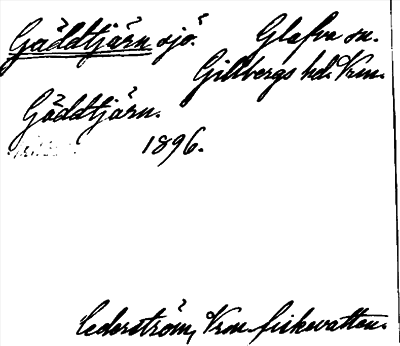 Gäddtjärn sjö. Glafva sn.
Gillbergs hd. Vrm.
Gäddtjärn.
1896.
Cederström, Vrm. fiskevatten.